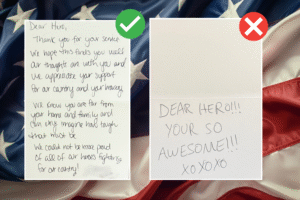 Dear Hero,
Thank you for your service
We hope this finds you well
Our thoughts are with you and
We appreciate your support
for our country and your bravery
We know you are far from
your home and family and
can only imagine how tough
that must be
We could not be more proud
of all of our heroes fighting
for our country!
DEAR HERO!!!
YOUR SO
AWESOME!!!
XOXOXO